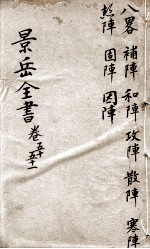 八畧 補陣 和陣 攻陣 散陣 寒陣
熱陣 固陣 因陣
景岳全書 卷